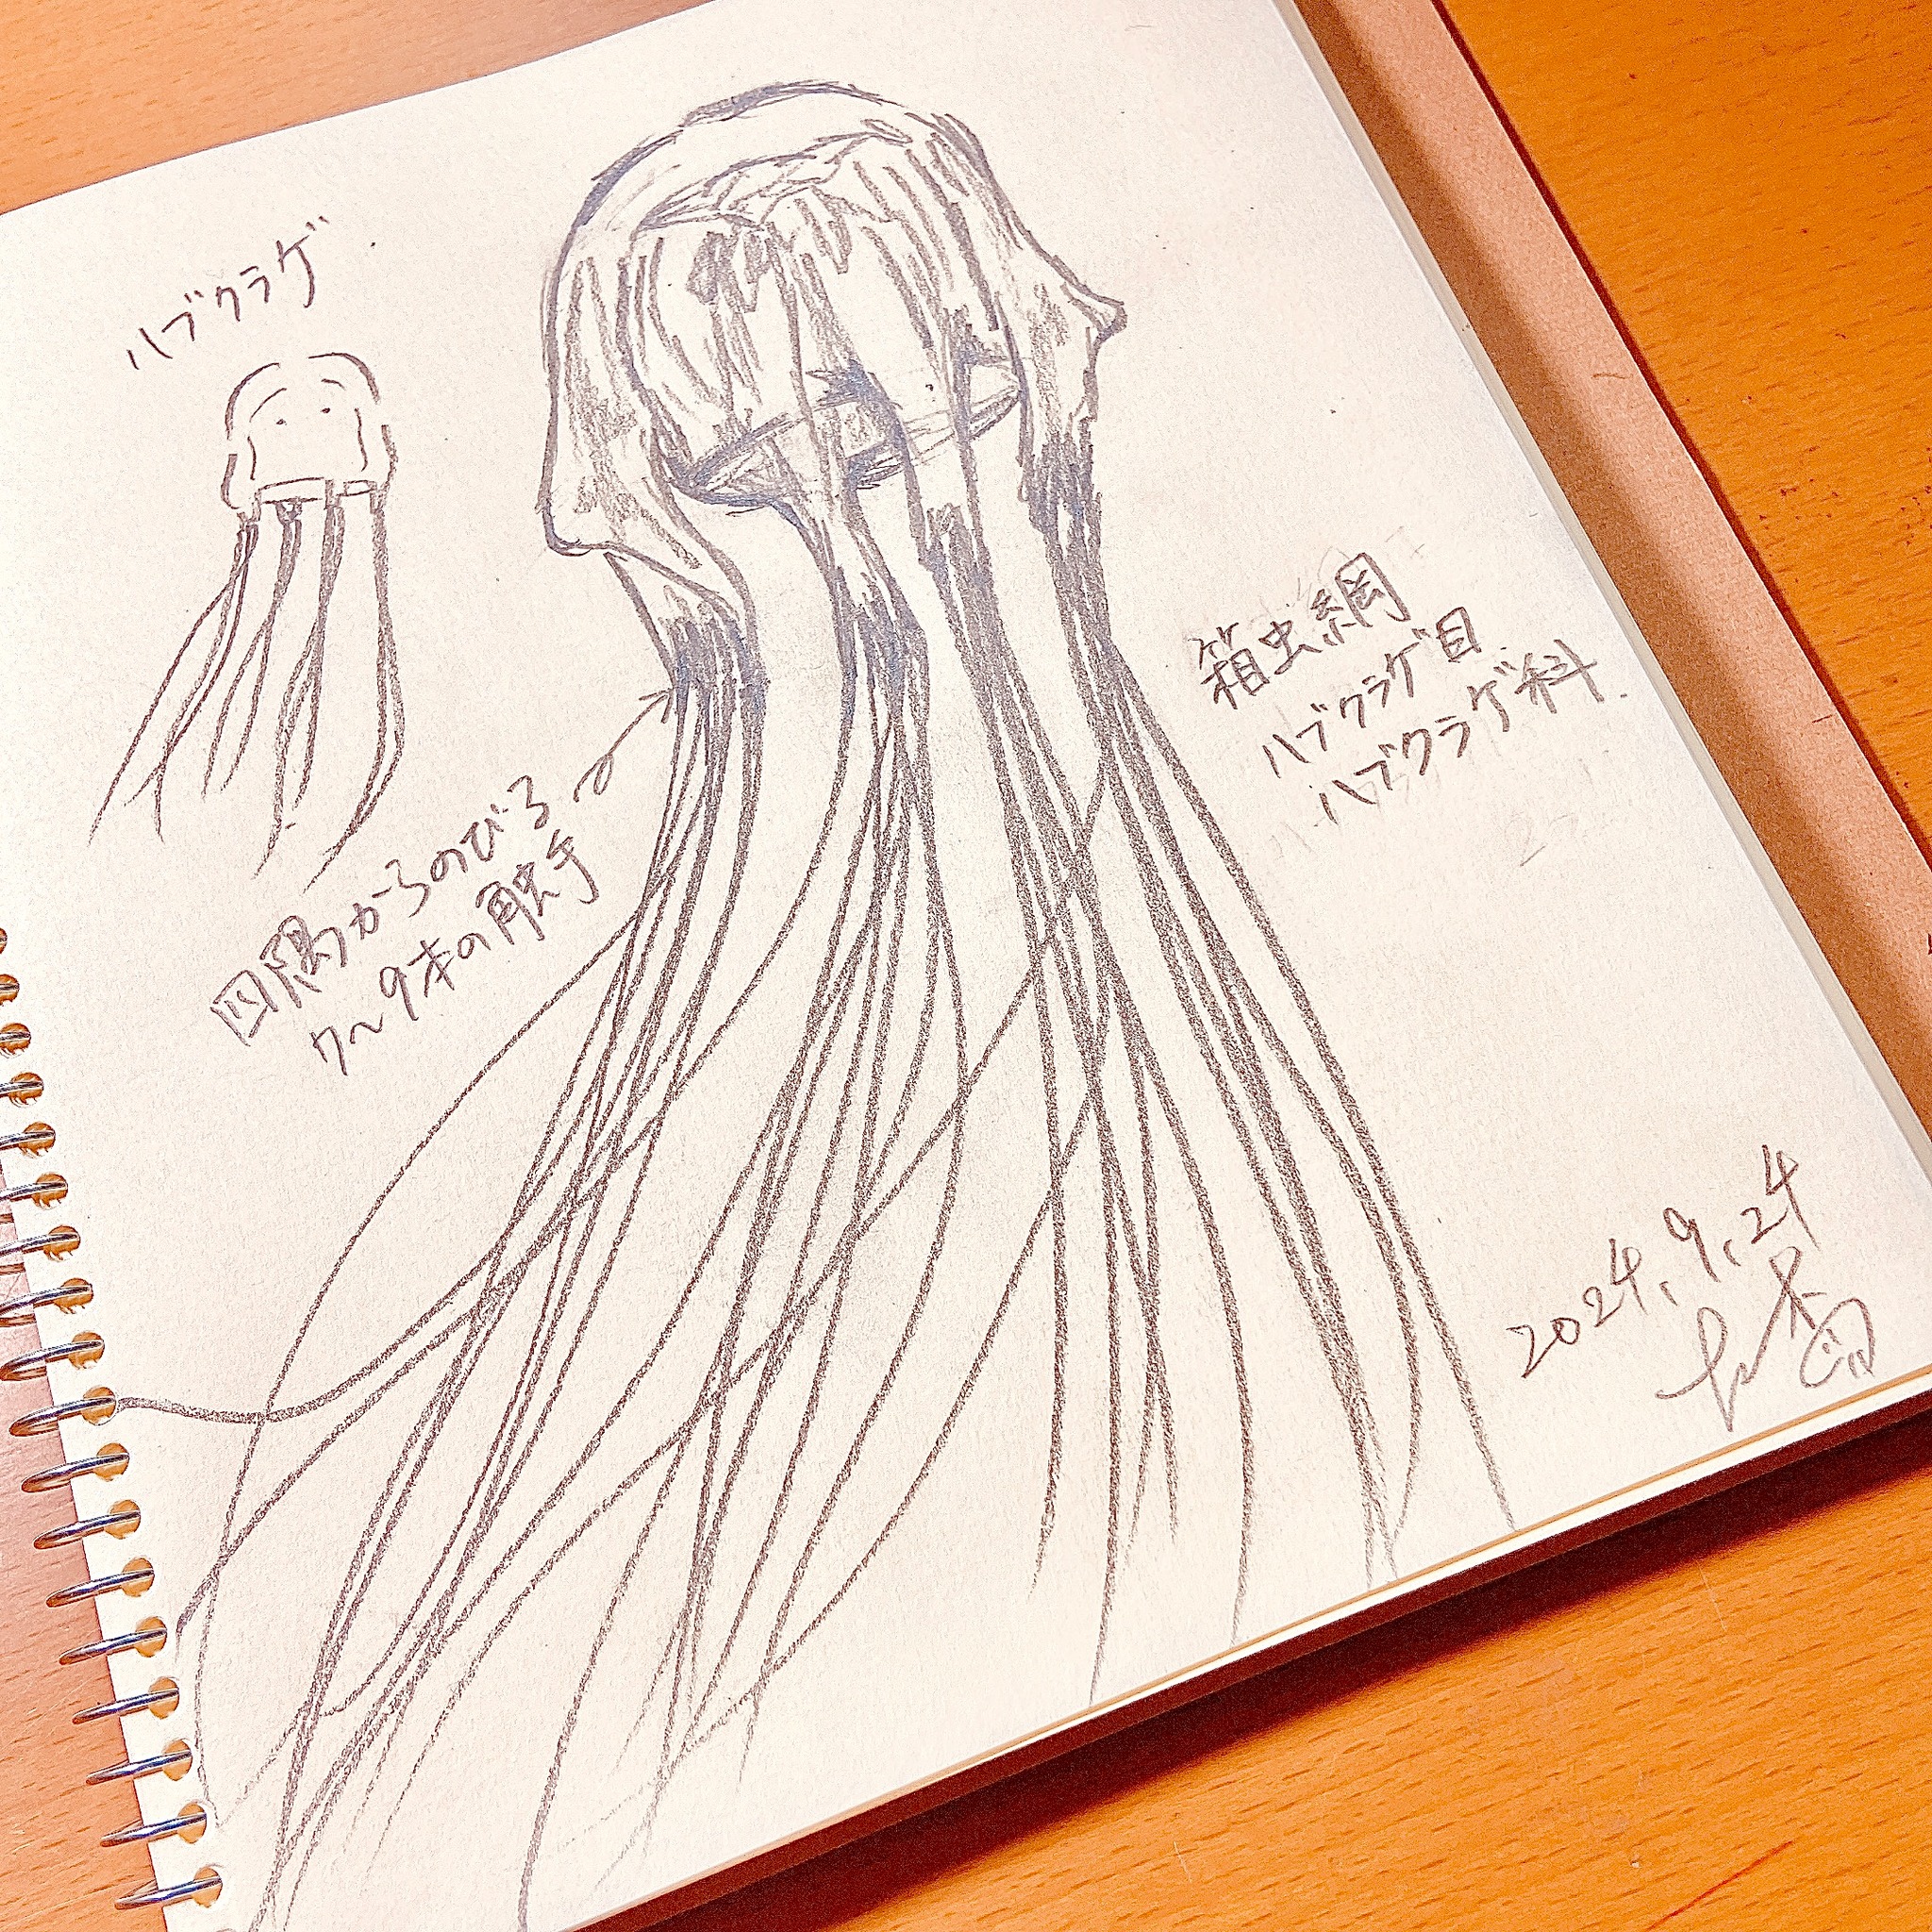 ハブクラゲ
四隅からのびる
7〜9本の触手
箱虫綱
ハブクラゲ目
ハブクラゲ科
2024.9.24